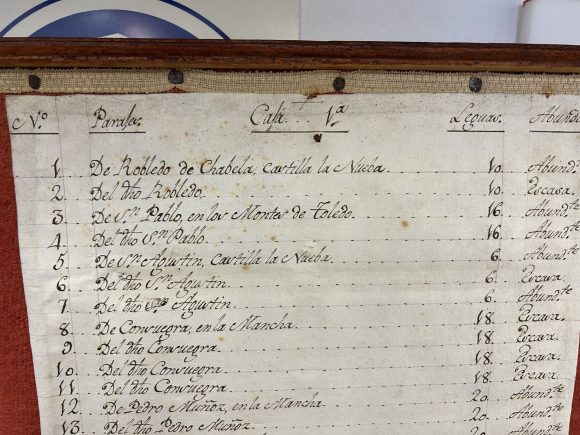 N.º Parajes. Caja 1.ª Leguas. Abund
1 De Robledo de Chabela, Castilla la Nueba 10. Abund.
2. Del dho Robledo. 10. Escasa.
3. De S.n Pablo, en los Montes de Toledo. 16. Abund.te
4. Del dho S.n Pablo. 16. Abund.te
5 De S.n Agustin, Castilla la Nueba. 6. Abund.te
6. Del dho S.n Agustin. 6. Escasa.
7 Del dho S.n Agustin. 6. Abund.te
8 De Consuegra, en la Mancha. 18. Escasa.
9. Del dho Consuegra. 18. Escasa.
10. Del dho Consuegra. 18. Escasa.
11. Del dho Consuegra. 18. Escasa.
12. De Pedro Muñoz, en la Mancha 20. Abund.te
13. Del dho Pedro Muñoz. 20. Abund.te